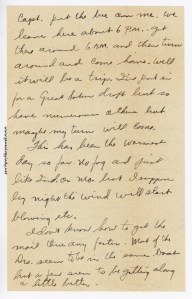 Capt. put the bee on me. We
leave here about 6 P.M. get
there around 6 AM and then turn
around and come home. Well
it will be a trip. I've put in
for a Great Lakes draft but so
have numerous others but
maybe my turn will come.
This has been the warmest
day so far. No fog and just
like Ind on Mar. but I suppose
by night the wind will start
blowing etc.
I don't know how to get the
mail thru any faster. Most of the
Drs. seem to be in the same boat
but a few seem to be getting along
a little better.